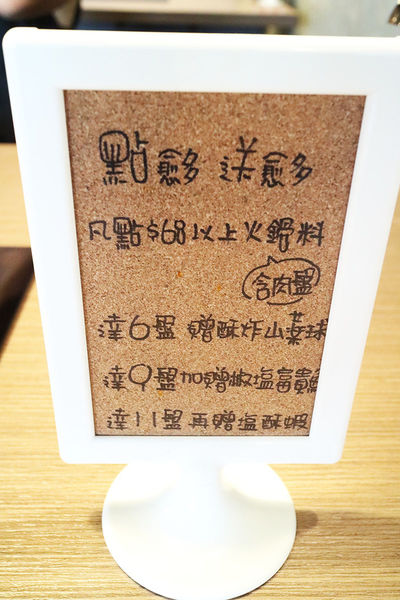 點愈多 送愈多
凡點$68以上火鍋料
含肉盤
達6盤 贈酥炸山藥球
達9盤加贈椒塩富貴魚
達11盤再贈塩酥蝦